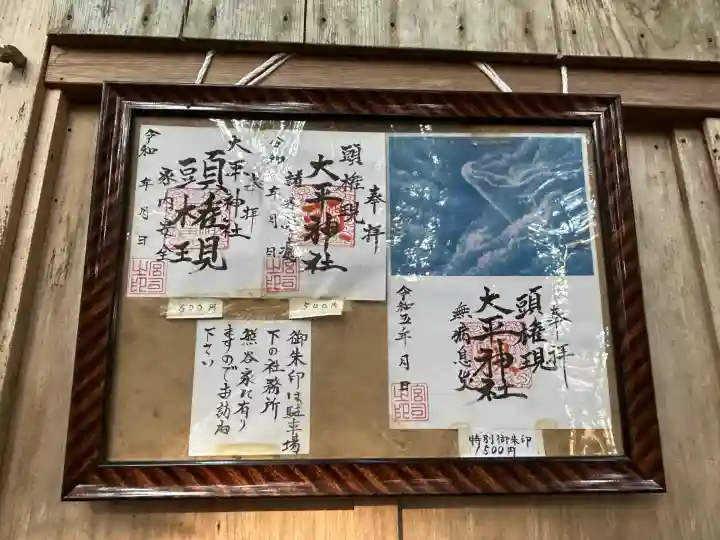 奉拝
頭権現
大平神社
令和 年 月 日
500円
奉拝
大平神社
頭権現
家内安全
令和 年 月 日
500円
奉拝
頭権現
大平神社
無病息災
令和五年 月 日
特別御朱印
1500円
御朱印は駐車場
下の社務所
熊谷家に有り
ますのでお訪ね
下さい